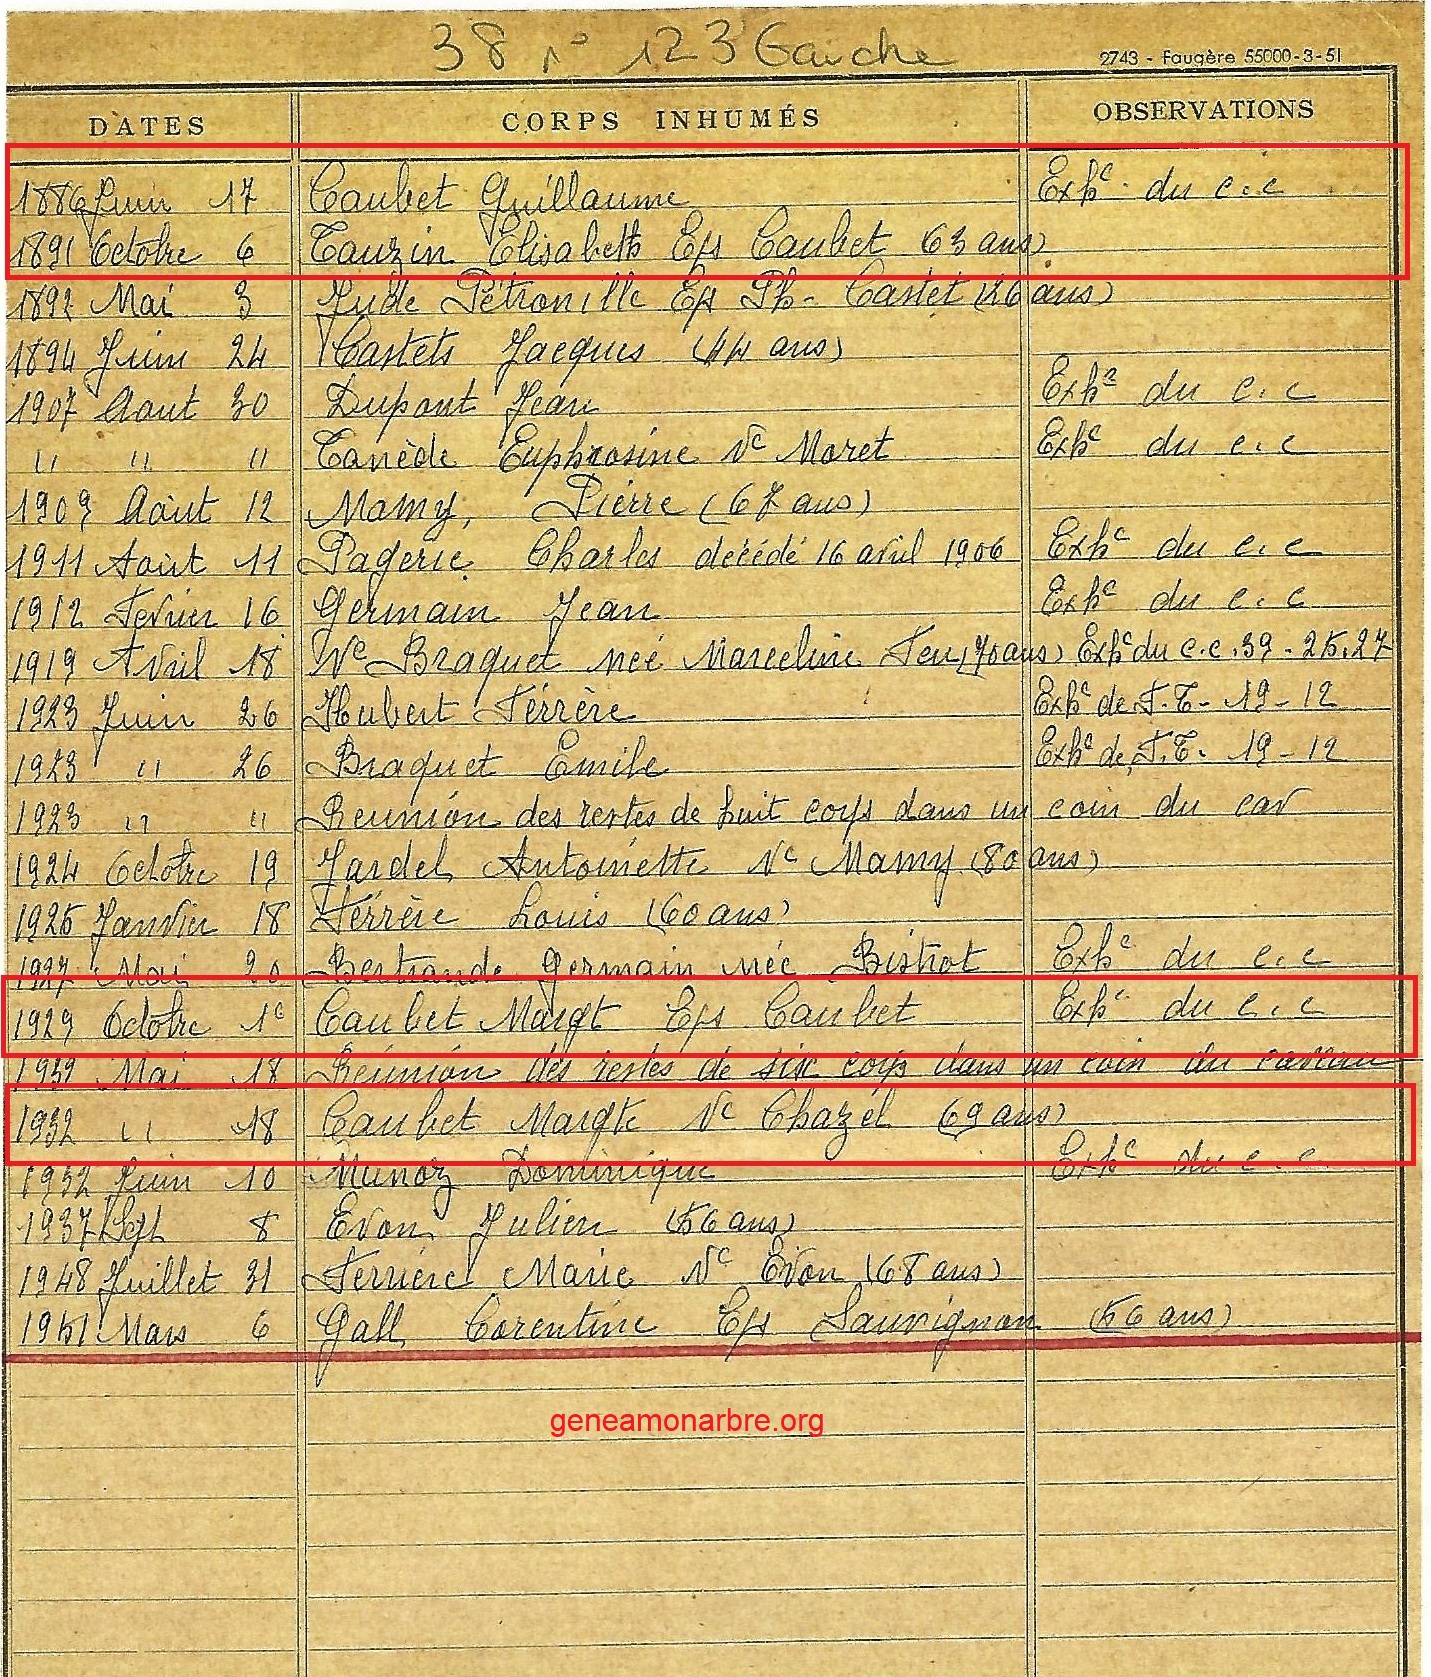 38 n° 123 Gauche
2743 - Faugère 55000-3-51
DATES CORPS INHUMÉS OBSERVATIONS
1886 Juin 17 Caubet Guillaume Exhᶜ du c.c
1891 Octobre 6 Tauzin Elisabeth Eps Caubet (63 ans)
1892 Mai 3 Jude Pétronille Eps Ph- Castet (26 ans)
1894 Juin 24 Castets Jacques (44 ans)
1907 Aout 30 Dupont Jean Exhᶜ du c.c
" " " Tanède Euphrosine Vᶜ Moret Exhᶜ du c.c
1909 Août 12 Mamy, Pierre (67 ans)
1911 Août 11 Pagerie Charles décédé 16 avril 1906 Exhᶜ du c.c
1912 Fevrier 16 Germain Jean Exhᶜ du c.c
1919 Avril 18 Vᶜ Braquet neé Marceline Feu (70 ans) Exhᶜ du c.c. 39 - 25.27
1923 Juin 26 Hubert Férrère Exhᶜ de T.T - 19 - 12
1923 " 26 Braquet Emile Exhᶜ de T.T. 19 - 12
1923 " " Reunion des restes de huit corps dans un coin du cav
1924 Octobre 19 Jardel Antoinette Vᶜ Mamy (80 ans)
1925 Janvier 18 Férrère Louis (60 ans)
1927 Mai 20 Bertrande Germain née Bistrot Exhᶜ du c.c
1929 Octobre 1ᶜ Caubet Margt Eps Caubet Exhᶜ du c.c
Mai 18 Réunion des restes de six corps dans un coin du caveau
1932 " 18 Caubet Margte Vᶜ Chazel (69 ans)
1932 Juin 10 Munoz Dominique Exhᶜ du c.c
1937 Sept 8 Evon Julien (56 ans)
1948 Juillet 31 Ferriere Marie Vᶜ Evon (68 ans)
1951 Mars 6 Gall Corentine Eps Sauvignon (56 ans)
geneamonarbre.org